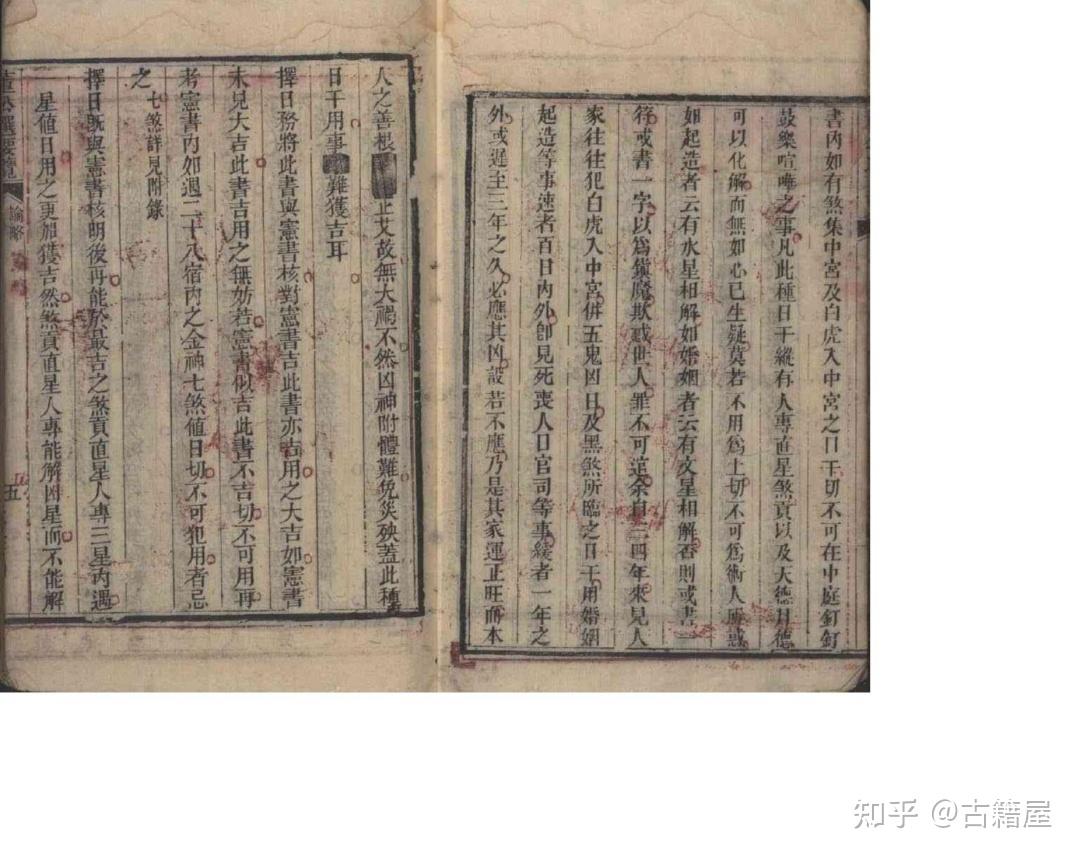 書內如有煞集中宮及白虎入中宮之日干切不可在中庭釘釘
鼓樂喧嘩之事凡此種日干縱有人專直星煞貢以及天德月德
可以化解而無如心已生疑莫若不用爲上切不可爲術人所惑
如起造者云有水星相解如婚姻者云有文星相解否則或書一
符或書一字以爲鎮魔欺惑世人罪不可逭余自三四年來見人
家往往犯白虎入中宮併五鬼凶日及黑煞所臨之日干用婚姻
起造等事速者百日內外卽見死喪人口官司等事緩者一年之
外或遲至三年之久必應其凶設若不應乃是其家運正旺而本
人之善根 止艾故無大禍不然凶神附體難免災殃蓋此種
日干用事 難獲吉耳
擇日務將此書與憲書核對憲書吉此書亦吉用之大吉如憲書
未見大吉此書吉用之無妨若憲書似吉此書不吉切不可用再
考憲書內如遇二十八宿內之金神七煞值日切不可犯用者忌
之 七煞詳見附錄
擇日既與憲書核明後再能於最吉之煞貢直星人專三星內遇
星值日用之更加獲吉然煞貢直星人專能解凶星而不能解
論略
五
知乎 @古籍屋